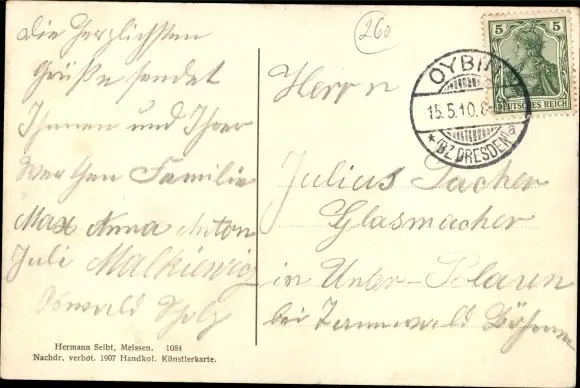 Die Herzlichsten
Grüße sendet
Ihnen und Ihrer
Werthen Familie
Max Anna Anton
Juli Malkiewiz
Oswald
260
5 5
DEUTSCHES REICH
OYBIN
15.5.10.8-
* (BZ. DRESDEN) a
Herrn
Julius Pacher
Glasmacher
in Unter-Polaun
bei Tannwald Böhmen
Hermann Seibt, Meissen. 1084
Nachdr. verbot. 1907 Handkol. Künstlerkarte.